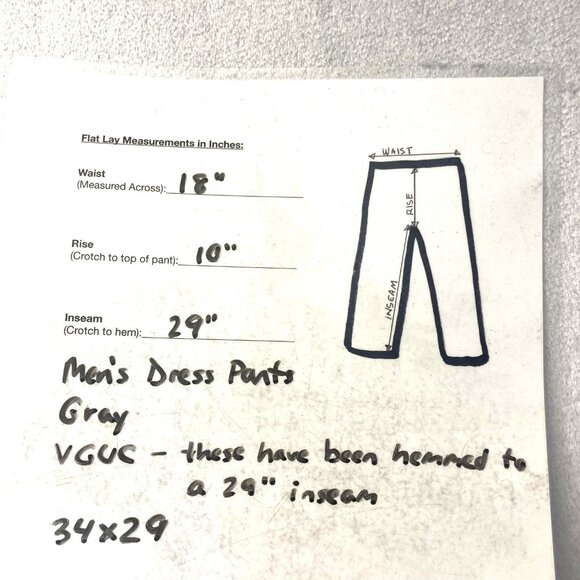 Flat Lay Measurements in Inches:
Waist
(Measured Across): 18"
Rise
(Crotch to top of pant): 10"
Inseam
(Crotch to hem): 29"
WAIST
RISE
INSEAM
Men's Dress Pants
Gray
VGUC - these have been hemmed to
a 29" inseam
34x29